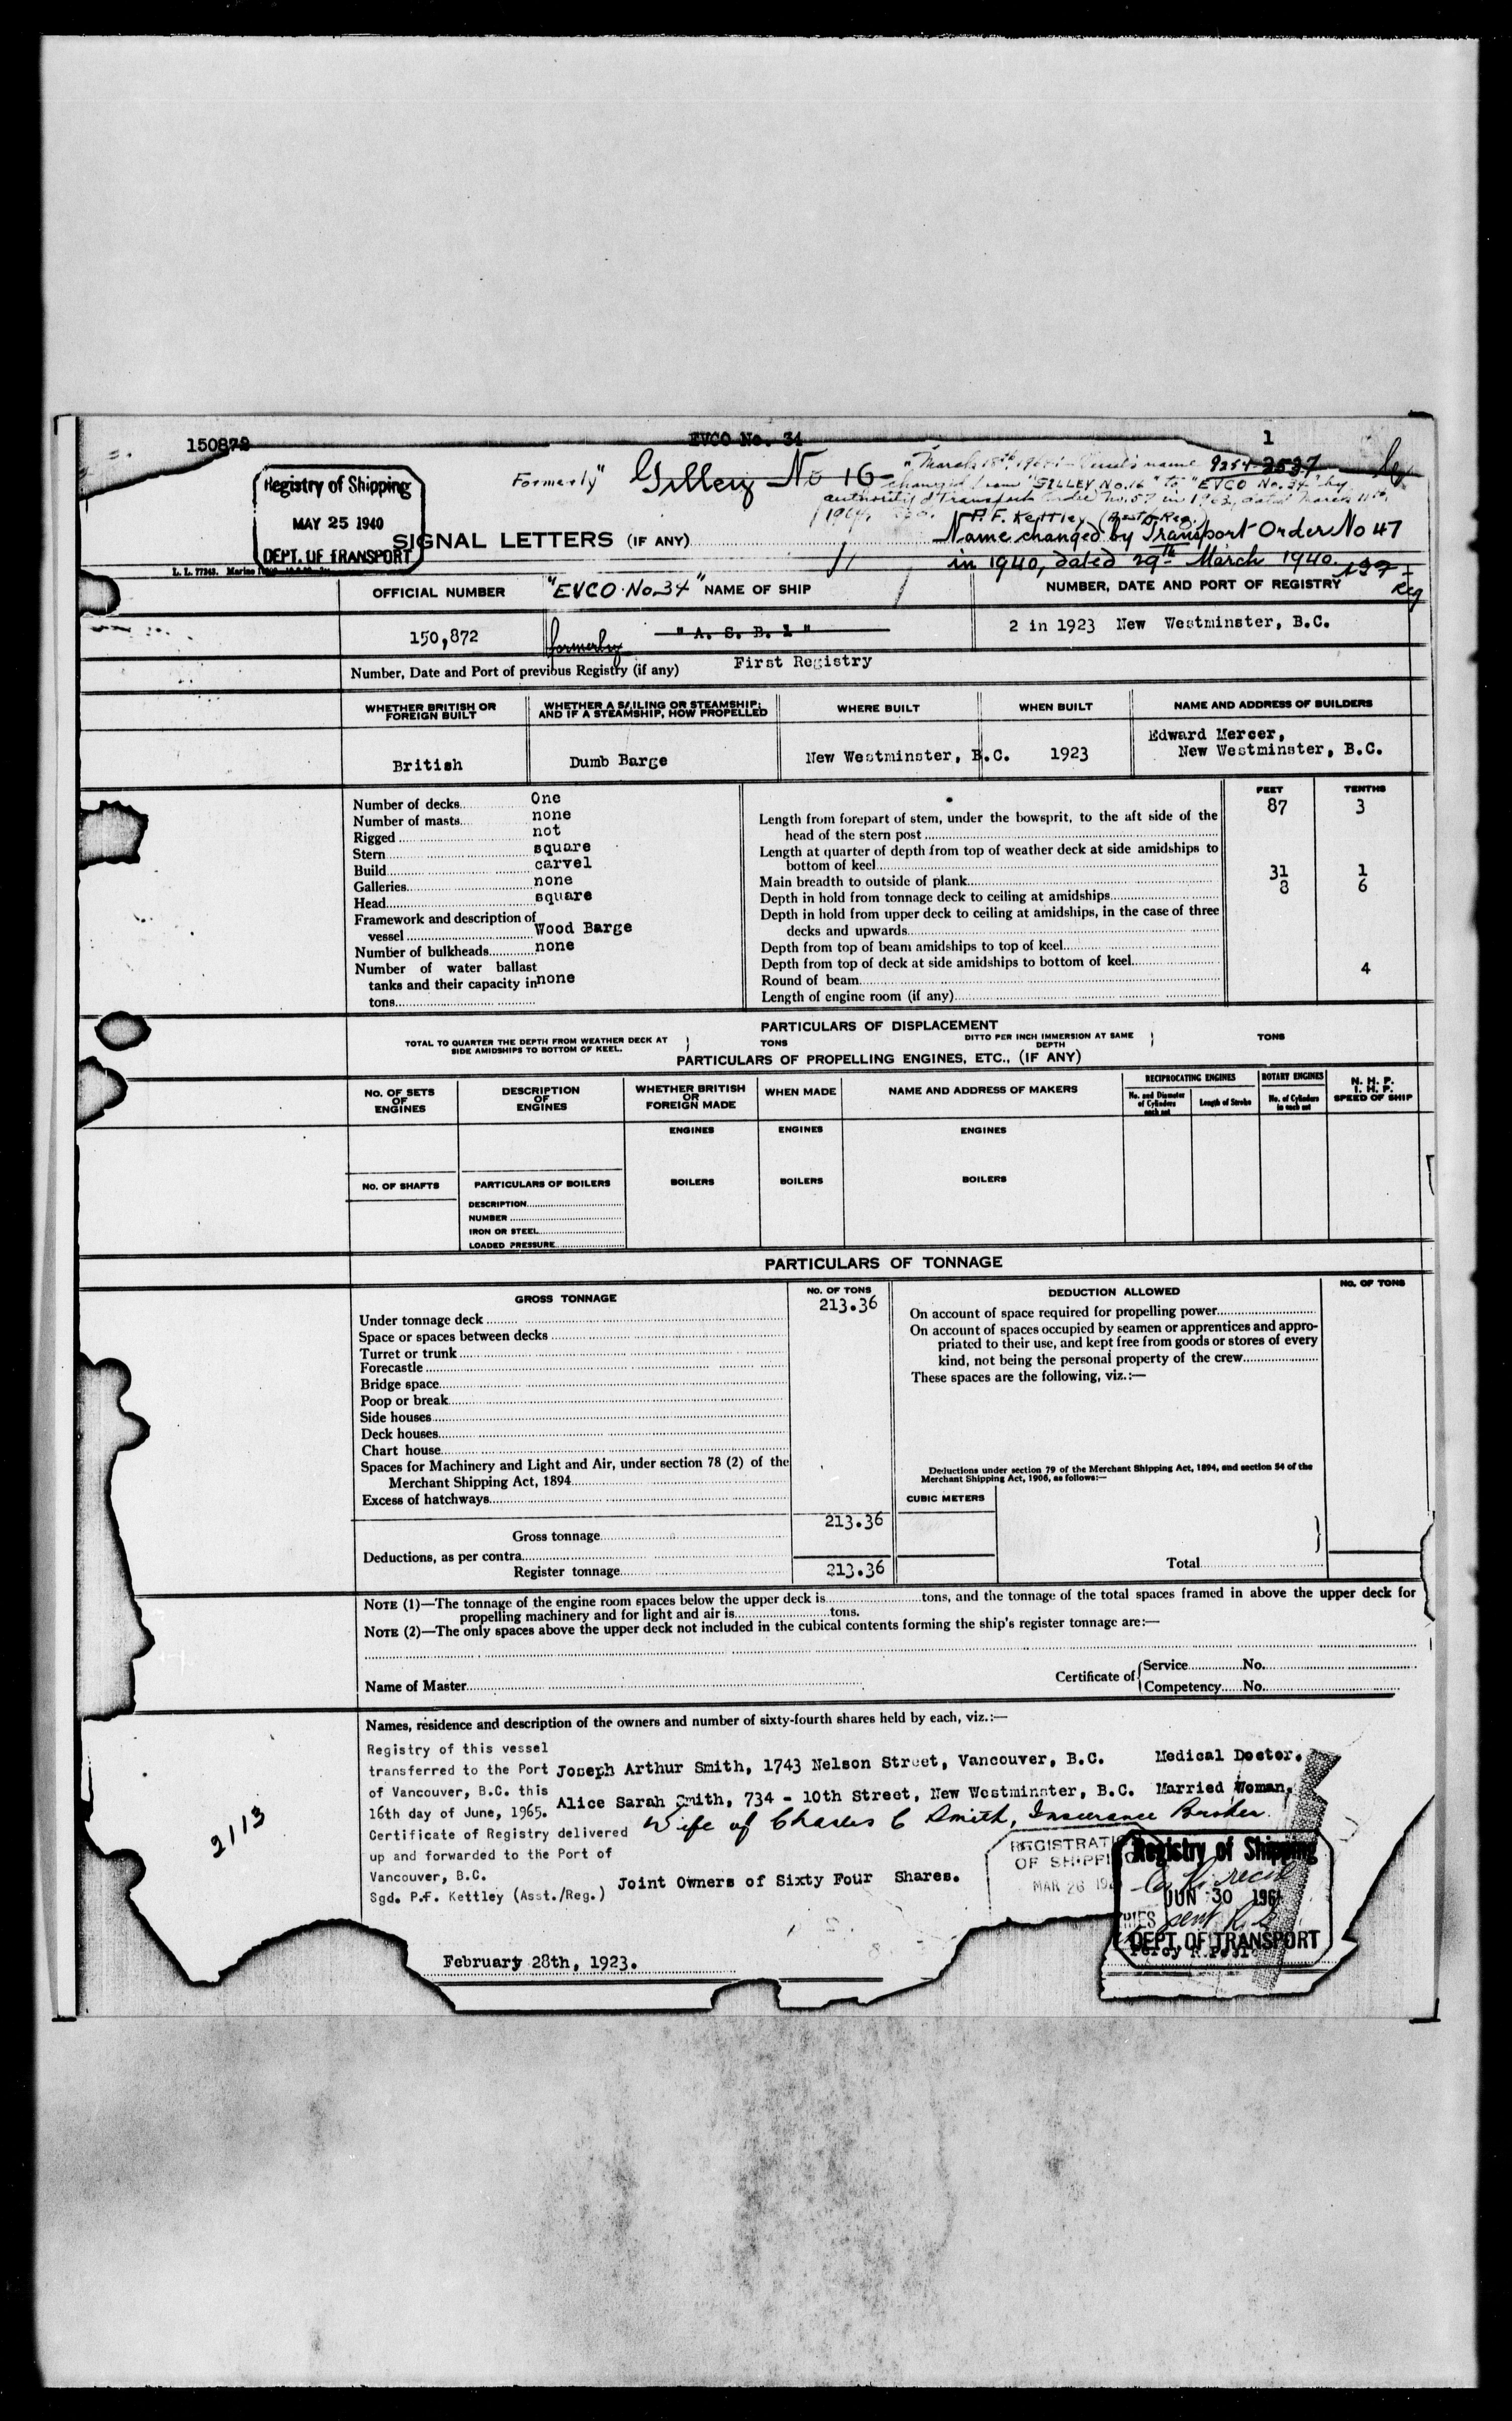 150872
EVCO No. 34
1
Formerly" Gilley No 16
"March 18th 1964 - Vessel's name
9254 2537
changed from "GILLEY No.16" to "EVCO No.34" by
authority of Transport Order No.57 in 1963, dated March 11th,
1964.
P.F. Kettley (Asst. Reg.)
Registry of Shipping
MAY 25 1940
DEPT. OF TRANSPORT
SIGNAL LETTERS (IF ANY)
Name changed by Transport Order No 47
in 1940, dated 29th March 1940.
Reg
L. L. 77243. Marine
OFFICIAL NUMBER
"EVCO·No.34" NAME OF SHIP
NUMBER, DATE AND PORT OF REGISTRY
150,872
formerly
" A. S. B. 1 "
2 in 1923 New Westminster, B.C.
Number, Date and Port of previous Registry (if any) First Registry
WHETHER BRITISH OR FOREIGN BUILT
WHETHER A SAILING OR STEAMSHIP; AND IF A STEAMSHIP, HOW PROPELLED
WHERE BUILT
WHEN BUILT
NAME AND ADDRESS OF BUILDERS
British
Dumb Barge
New Westminster, B.C.
1923
Edward Mercer,
New Westminster, B.C.
Number of decks One
Number of masts none
Rigged not
Stern square
Build carvel
Galleries none
Head square
Framework and description of
vessel Wood Barge
Number of bulkheads none
Number of water ballast
tanks and their capacity in none
tons
FEET TENTHS
87 3
Length from forepart of stem, under the bowsprit, to the aft side of the
head of the stern post
Length at quarter of depth from top of weather deck at side amidships to
bottom of keel
Main breadth to outside of plank 31 1
Depth in hold from tonnage deck to ceiling at amidships 8 6
Depth in hold from upper deck to ceiling at amidships, in the case of three
decks and upwards
Depth from top of beam amidships to top of keel
Depth from top of deck at side amidships to bottom of keel
Round of beam 4
Length of engine room (if any)
PARTICULARS OF DISPLACEMENT
TOTAL TO QUARTER THE DEPTH FROM WEATHER DECK AT
SIDE AMIDSHIPS TO BOTTOM OF KEEL.
TONS
DITTO PER INCH IMMERSION AT SAME
DEPTH
TONS
PARTICULARS OF PROPELLING ENGINES, ETC., (IF ANY)
NO. OF SETS OF ENGINES
DESCRIPTION OF ENGINES
WHETHER BRITISH OR FOREIGN MADE
WHEN MADE
NAME AND ADDRESS OF MAKERS
RECIPROCATING ENGINES
ROTARY ENGINES
N. H. P.
I. H. P.
SPEED OF SHIP
No. and Diameter of Cylinders each set
Length of Stroke
No. of Cylinders in each set
ENGINES
ENGINES
ENGINES
NO. OF SHAFTS
PARTICULARS OF BOILERS
BOILERS
BOILERS
BOILERS
DESCRIPTION
NUMBER
IRON OR STEEL
LOADED PRESSURE
PARTICULARS OF TONNAGE
GROSS TONNAGE
NO. OF TONS
DEDUCTION ALLOWED
NO. OF TONS
Under tonnage deck 213.36
Space or spaces between decks
Turret or trunk
Forecastle
Bridge space
Poop or break
Side houses
Deck houses
Chart house
Spaces for Machinery and Light and Air, under section 78 (2) of the
Merchant Shipping Act, 1894
Excess of hatchways
Gross tonnage 213.36
Deductions, as per contra
Register tonnage 213.36
On account of space required for propelling power
On account of spaces occupied by seamen or apprentices and appro-
priated to their use, and kept free from goods or stores of every
kind, not being the personal property of the crew
These spaces are the following, viz.:—
Deductions under section 79 of the Merchant Shipping Act, 1894, and section 54 of the
Merchant Shipping Act, 1906, as follows:—
CUBIC METERS
Total
NOTE (1)—The tonnage of the engine room spaces below the upper deck is tons, and the tonnage of the total spaces framed in above the upper deck for
propelling machinery and for light and air is tons.
NOTE (2)—The only spaces above the upper deck not included in the cubical contents forming the ship's register tonnage are:—
Name of Master
Certificate of
Service No.
Competency No.
Names, residence and description of the owners and number of sixty-fourth shares held by each, viz.:—
Registry of this vessel
transferred to the Port
of Vancouver, B.C. this
16th day of June, 1965.
Certificate of Registry delivered
up and forwarded to the Port of
Vancouver, B.C.
Sgd. P.F. Kettley (Asst./Reg.)
Joseph Arthur Smith, 1743 Nelson Street, Vancouver, B.C. Medical Doctor.
Alice Sarah Smith, 734 - 10th Street, New Westminster, B.C. Married Woman,
Wife of Charles C Smith, Insurance Broker.
Joint Owners of Sixty Four Shares.
2113
OF SHIPPI
MAR 26
Registry of Shipping
JUN 30
DEPT. OF TRANSPORT
February 28th, 1923.